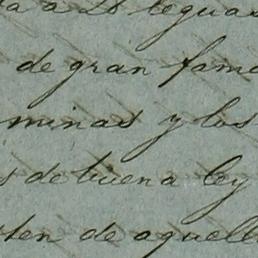 a a 20 leguas
de gran fama
minas y los
s de buena ley
ten de aquell